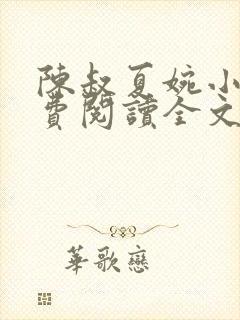 陳叔夏婉小
費閱讀全文
華歌戀